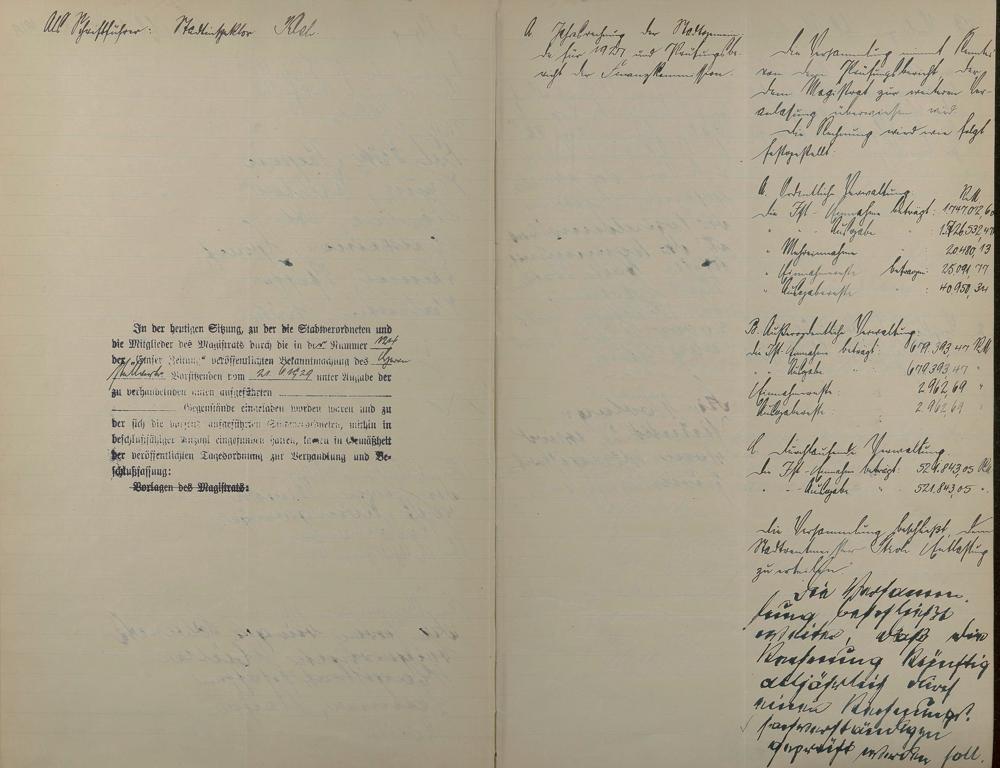 Als Schriftführer: Stadtinspektor
In der heutigen Sitzung, zu der die Stadtverordneten und
die Mitglieder des Magistrats durch die in der Nummer
der „Emser Zeitung“ veröffentlichten Bekanntmachung des
Vorsitzenden vom 21.6.1929 unter Angabe der
zu verhandelnden unten aufgeführten
Gegenstände eingeladen worden waren und zu
der sich die vorseits aufgeführten Stadtverordneten, mithin in
beschlußfähiger Anzahl eingefunden hatten, kamen in Gemäßheit
der veröffentlichten Tagesordnung zur Verhandlung und Be-
schlußfassung:
Vorlagen des Magistrats:
Jahresrechnung der Stadtgemein-
de für 1927 und Prüfungsbe-
richt der Finanzkommission.
Die Versammlung nimmt Kenntnis
von dem Prüfungsbericht, der
dem Magistrat zur weiteren Ver-
anlassung überwiesen wird.
Die Rechnung wird wie folgt
festgestellt:
A. Ordentliche Verwaltung. RM
Die Ist-Einnahme beträgt:
" " Ausgabe "
" Mehreinnahme " 20480,13
" Einnahmereste betragen: 25091,77
" Ausgabereste " : 40950,34
B. Außerordentliche Verwaltung.
Die Ist-Einnahme beträgt: 679.393,47 RM
" " Ausgabe 679393,47 "
Einnahmereste 2962,69 "
Ausgabereste 2962,69 "
C. Durchlaufende Verwaltung.
Die Ist-Einnahme beträgt: 521.843,05 RM
" " Ausgabe " 521.843,05 "
Die Versammlung beschließt, dem
Stadtrentmeister Entlastung
zu erteilen.
Die Versamm-
lung beschließt
weiter, daß die
Rechnung künftig
alljährlich durch
einen Rechnungs-
sachverständigen
geprüft werden soll.